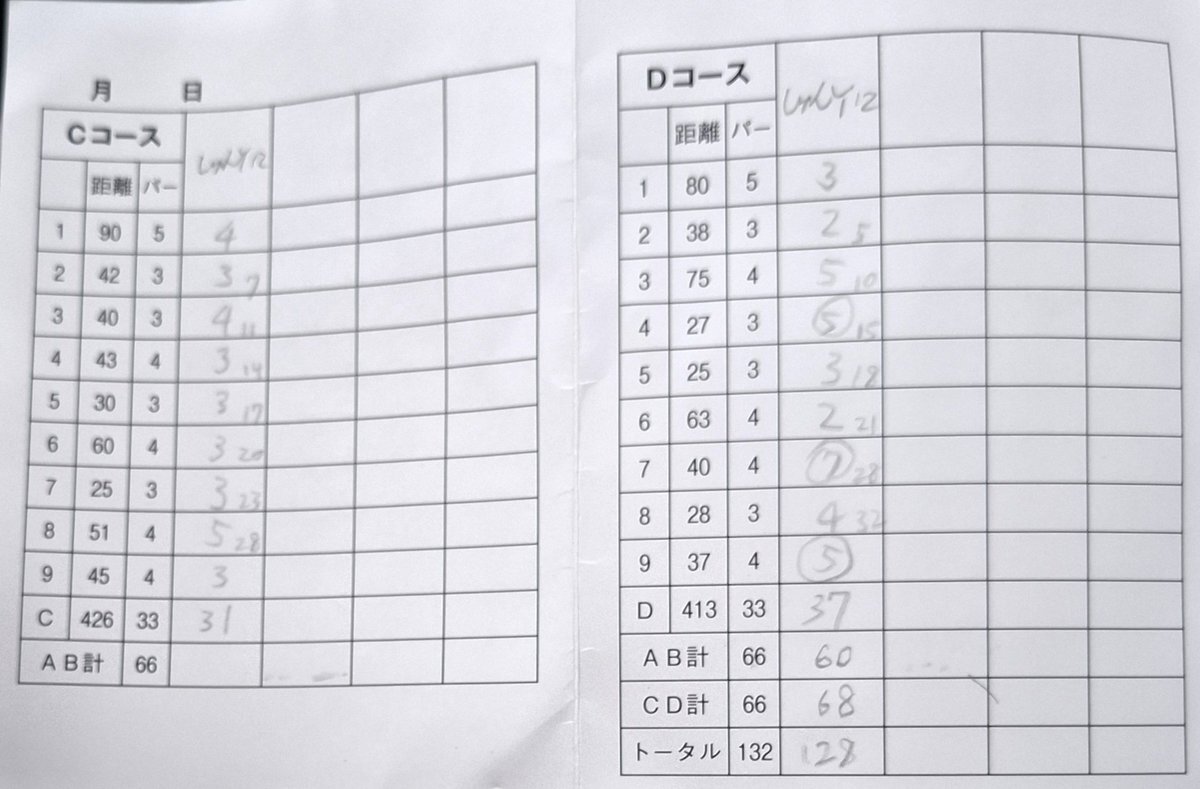 月 日
Cコース
距離 パー
1 90 5 4
2 42 3 3 7
3 40 3 4 11
4 43 4 3 14
5 30 3 3 17
6 60 4 3 20
7 25 3 3 23
8 51 4 5 28
9 45 4 3
C 426 33 31
AB計 66
Dコース
距離 パー
1 80 5 3
2 38 3 2 5
3 75 4 5 10
4 27 3 5 15
5 25 3 3 18
6 63 4 2 21
7 40 4 7 28
8 28 3 4 32
9 37 4 5
D 413 33 37
AB計 66 60
CD計 66 68
トータル 132 128